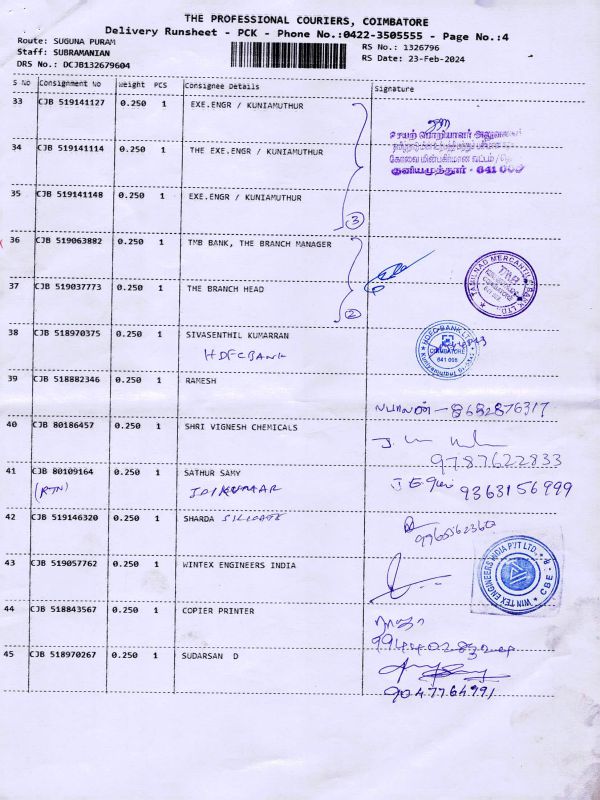 THE PROFESSIONAL COURIERS, COIMBATORE
Delivery Runsheet - PCK - Phone No.:0422-3505555 - Page No.:4
Route: SUGUNA PURAM
RS No.: 1326796
Staff: SUBRAMANIAN
RS Date: 23-Feb-2024
DRS No.: DCJB132679604
S No Consignment No Weight PCS Consignee Details Signature
33 CJB 519141127 0.250 1 EXE.ENGR / KUNIAMUTHUR
செயற் பொறியாளர் அலுவலகம்
34 CJB 519141114 0.250 1 THE EXE.ENGR / KUNIAMUTHUR
கோவை மின்பகிர்மான வட்டம்
குனியமுத்தூர் - 641 008
35 CJB 519141148 0.250 1 EXE.ENGR / KUNIAMUTHUR
3
36 CJB 519063882 0.250 1 TMB BANK, THE BRANCH MANAGER
TAMILNAD MERCANTILE BANK LTD.
TMB
37 CJB 519037773 0.250 1 THE BRANCH HEAD
2
38 CJB 518970375 0.250 1 SIVASENTHIL KUMARRAN
HDFC BANK
HDFC BANK LTD
COIMBATORE
641 008
39 CJB 518882346 0.250 1 RAMESH
பாலன் - 8682876317
40 CJB 80186457 0.250 1 SHRI VIGNESH CHEMICALS
9787622833
41 CJB 80109164 0.250 1 SATHUR SAMY
(RTN)
9363156999
42 CJB 519146320 0.250 1 SHARDA SILICATE
9965562360
43 CJB 519057762 0.250 1 WINTEX ENGINEERS INDIA
WINTEX ENGINEERS INDIA PVT LTD. CBE - 8
44 CJB 518843567 0.250 1 COPIER PRINTER
ராஜா
45 CJB 518970267 0.250 1 SUDARSAN D
9047764991